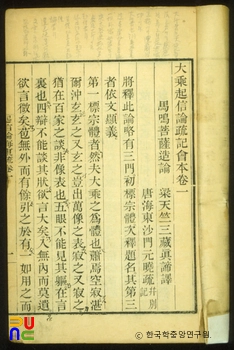 大乘起信論疏記會本卷一
馬鳴菩薩造論 梁天竺三藏眞諦譯
唐海東沙門元曉疏 幷別記
將釋此論略有三門初標宗體次釋題名其第三
者依文顯義
第一標宗體者然夫大乘之爲體也蕭焉空寂湛
爾沖玄玄之又玄之豈出萬像之表寂之又寂之
猶在百家之談非像表也五眼不能見其軀在言
裏也四辯不能談其狀欲言大矣入無內而莫遺
欲言微矣苞無外而有餘引之於有一如用之而
© 한국학중앙연구원